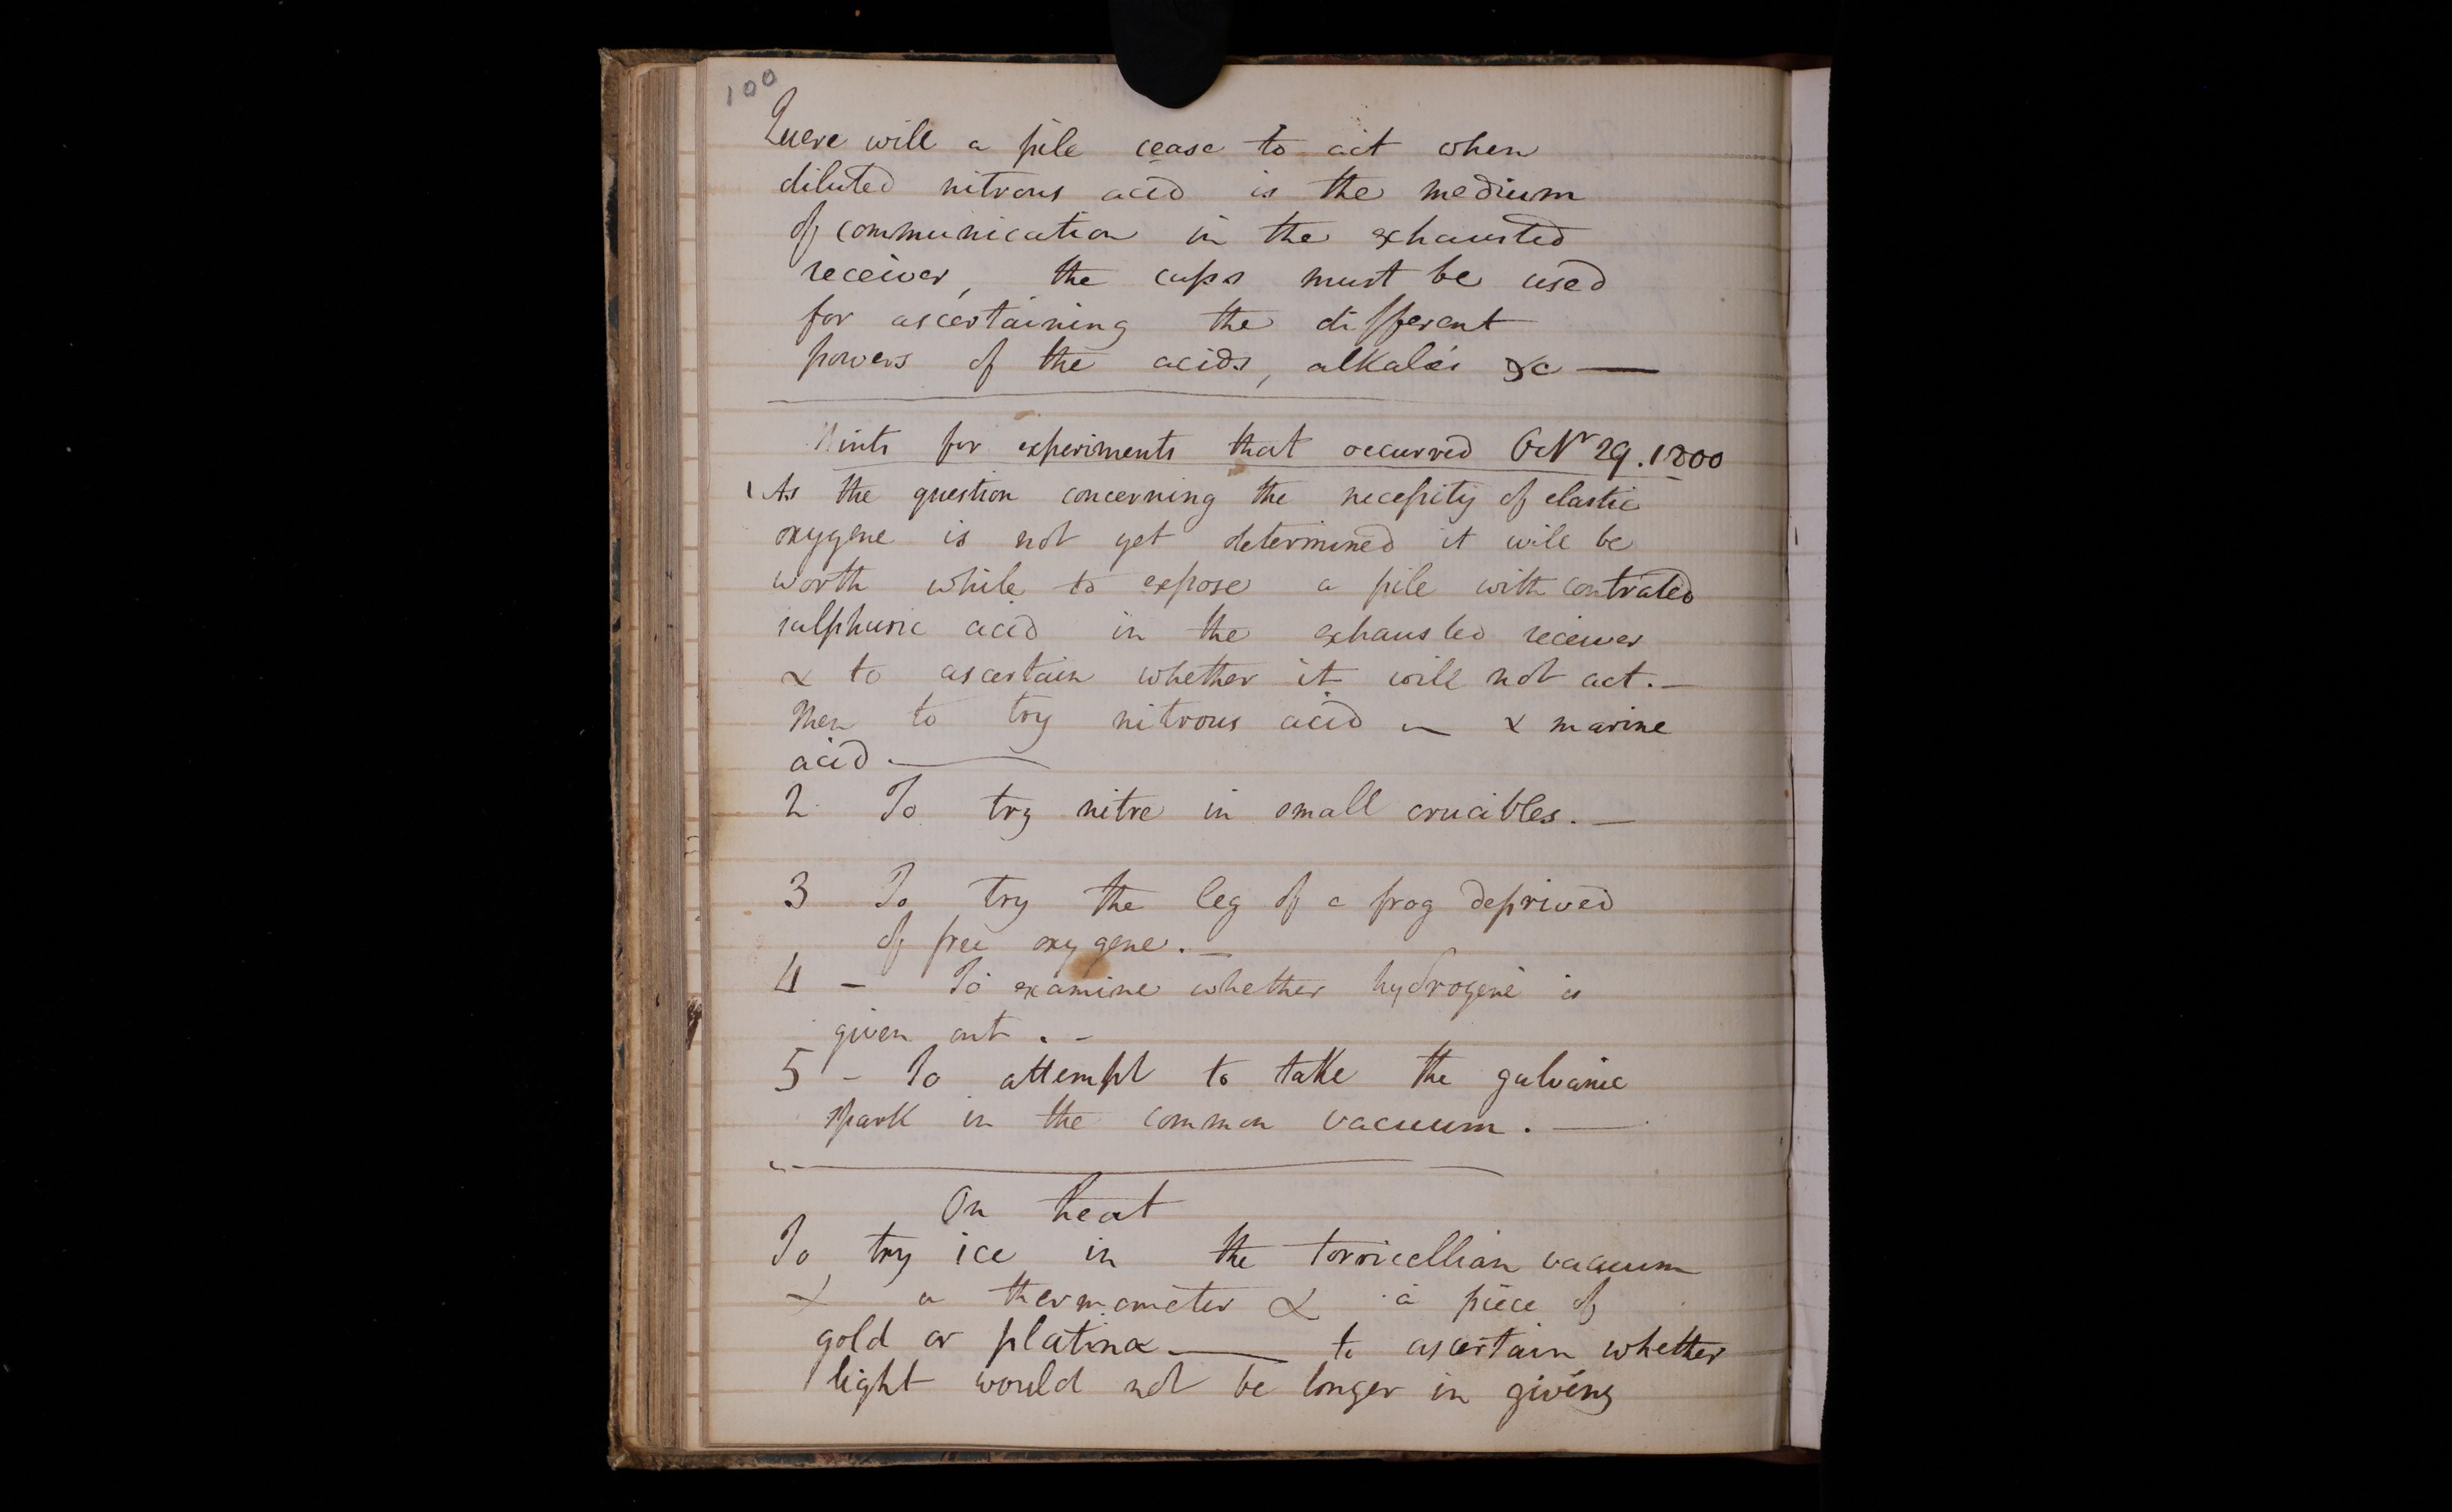 100
Quere will a pile cease to act when
diluted nitrous acid is the medium
of communication in the exhausted
receiver, the cups must be used
for ascertaining the different
powers of the acids, alkalis &c —
Hints for experiments that occurred Octr 29. 1800
1 As the question concerning the necessity of elastic
oxygene is not yet determined it will be
worth while to expose a pile with contrated
sulphuric acid in the exhausted receiver
& to ascertain whether it will not act. —
Then to try nitrous acid — & marine
acid. —
2 To try nitre in small crucibles. —
3 To try the leg of a frog deprived
of free oxygene. —
4 – To examine whether hydrogene is
given out . –
5 – To attempt to take the galvanic
spark in the common vacuum. —
On heat
To try ice in the torricellian vacuum
& a thermometer & a piece of
gold or platina — to ascertain whether
light would not be longer in giving